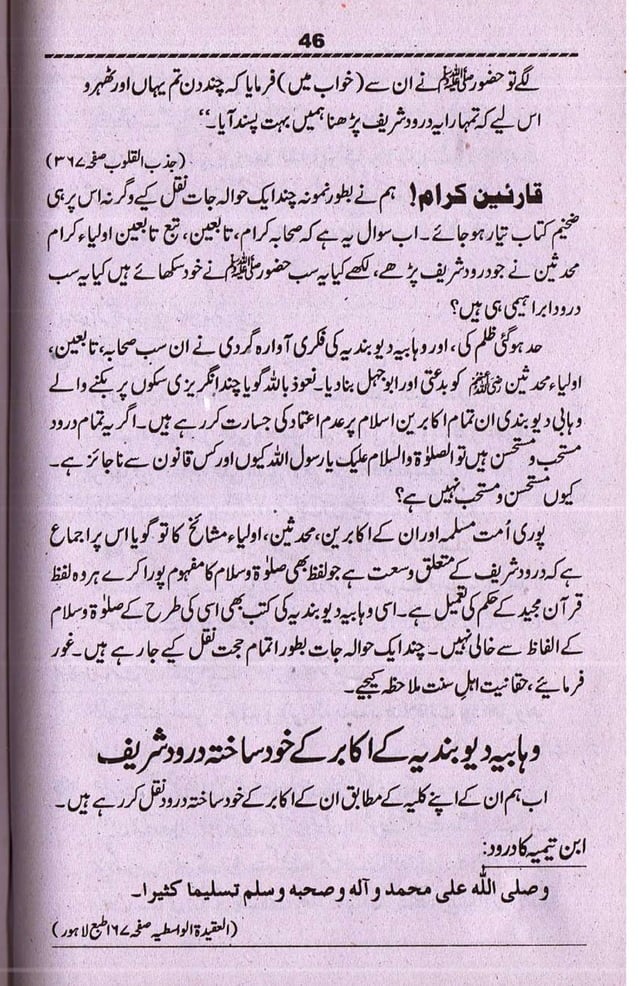 46
لگے تو حضور ﷺ نے ان سے (خواب میں) فرمایا کہ چند دن تم یہاں اور ٹھہرو
اس لیے کہ تمہارا یہ درود شریف پڑھنا ہمیں بہت پسند آیا۔‘‘
(جذب القلوب صفحہ ۳۶۷)
قارئین کرام! ہم نے بطور نمونہ چند ایک حوالہ جات نقل کیے وگرنہ اس پر ہی
ضخیم کتاب تیار ہو جائے۔ اب سوال یہ ہے کہ صحابہ کرام، تابعین، تبع تابعین اولیاء کرام
محدثین نے جو درود شریف پڑھے، لکھے کیا یہ سب حضور ﷺ نے خود سکھائے ہیں کیا یہ سب
درود ابراہیمی ہی ہیں؟
حد ہو گئی ظلم کی، اور وہابیہ دیوبندیہ کی فکری آوارہ گردی نے ان سب صحابہ، تابعین،
اولیاء محدثین ﷺ کو بدعتی اور ابوجہل بنا دیا۔ نعوذ باللہ گویا چند انگریزی سکوں پر بکنے والے
وہابی دیوبندی ان تمام اکابرین اسلام پر عدم اعتماد کی جسارت کر رہے ہیں۔ اگر یہ تمام درود
مستحب و مستحسن ہیں تو الصلوٰۃ والسلام علیک یا رسول اللہ کیوں اور کس قانون سے ناجائز ہے۔
کیوں مستحسن و مستحب نہیں ہے؟
پوری اُمت مسلمہ اور ان کے اکابرین، محدثین، اولیاء مشائخ کا تو گویا اس پر اجماع
ہے کہ درود شریف کے متعلق وسعت ہے جو لفظ بھی صلوٰۃ و سلام کا مفہوم پورا کرے ہر وہ لفظ
قرآن مجید کے حکم کی تعمیل ہے۔ اسی وہابیہ دیوبندیہ کی کتب بھی اسی کی طرح کے صلوٰۃ و سلام
کے الفاظ سے خالی نہیں۔ چند ایک حوالہ جات بطور اتمام حجت نقل کیے جا رہے ہیں۔ غور
فرمائیے، حقانیت اہلِ سنت ملاحظہ کیجیے۔
وہابیہ دیوبندیہ کے اکابر کے خود ساختہ درود شریف
اب ہم ان کے اپنے کلیہ کے مطابق ان کے اکابر کے خود ساختہ درود نقل کر رہے ہیں۔
ابن تیمیہ کا درود:
وصلی اللہ علی محمد و آلہ و صحبہ و سلم تسلیما کثیرا۔
(العقیدۃ الواسطیہ صفحہ ۱۶۷ طبع لاہور)